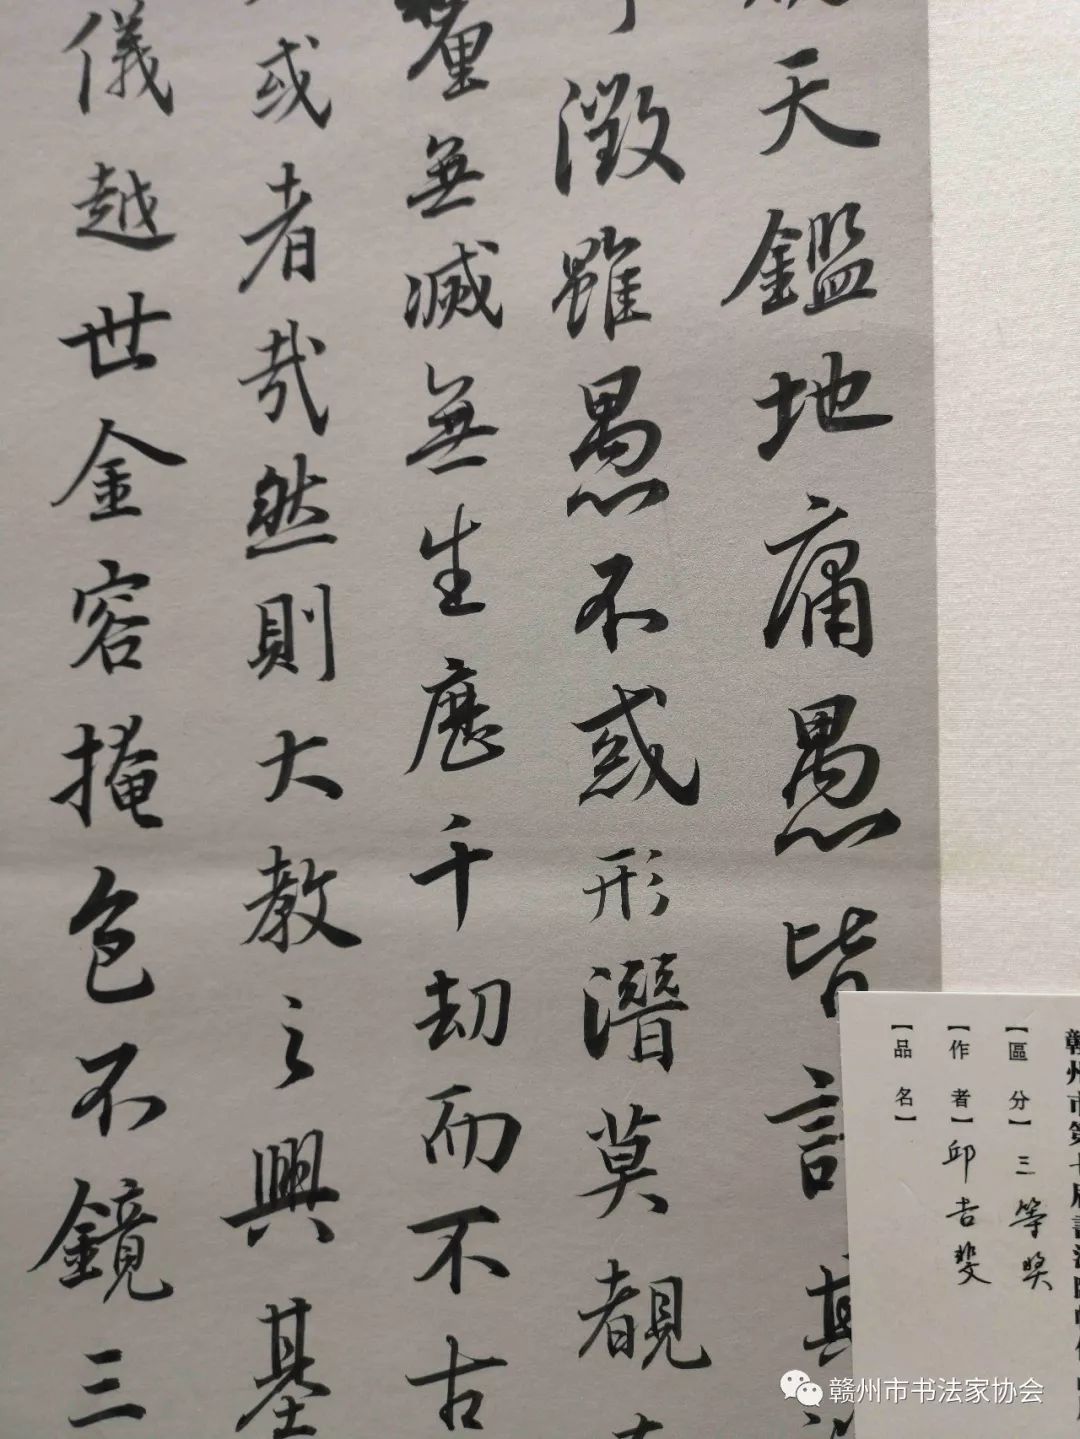 天鑑地庸愚皆
徵雖愚不惑形潛莫覩
釐無滅無生歷千劫而不古
或者哉然則大教之興基
儀越世金容掩色不鏡三
贛州市第
【區分】三等奖
【作者】邱吉斐
【品名】
赣州市书法家协会